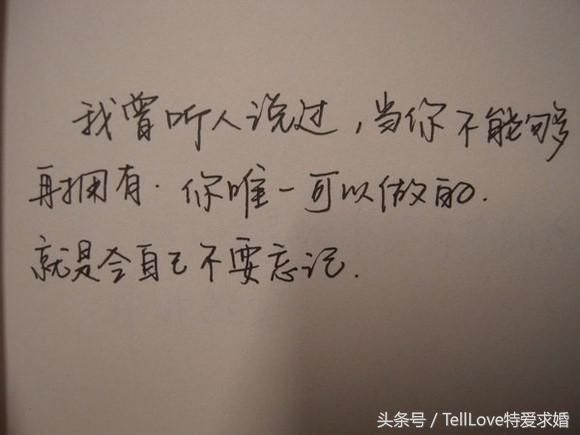 我曾听人说过，当你不能够
再拥有. 你唯一可以做的.
就是令自己不要忘记.
头条号 / TellLove特爱求婚